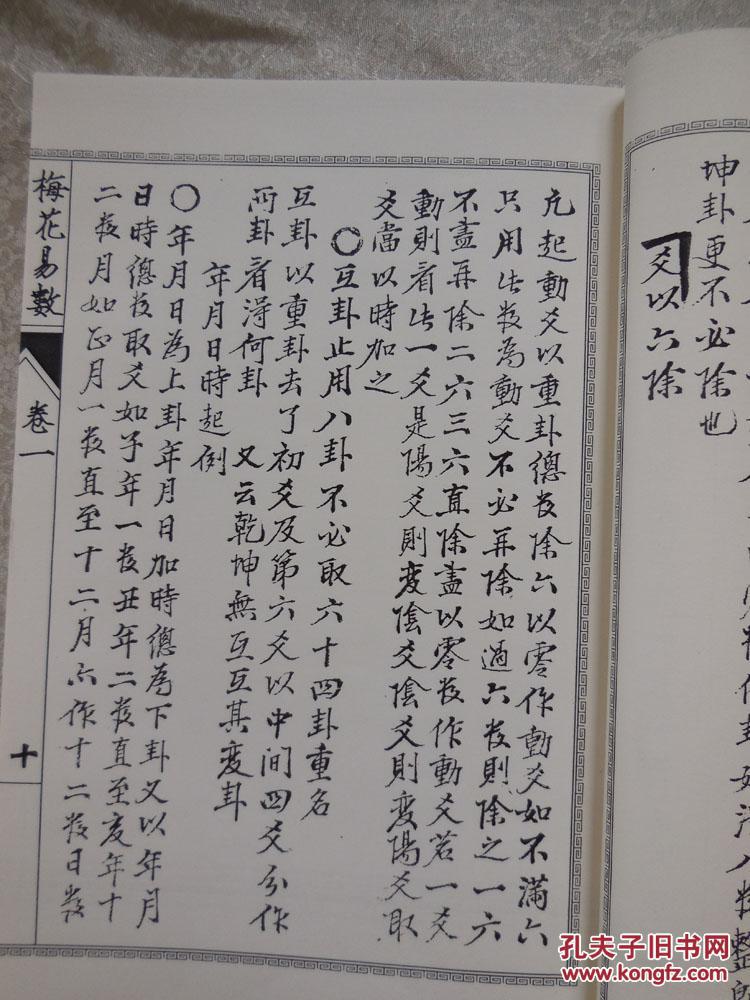 坤卦更不必除也
爻以六除
凢起動爻以重卦總数除六以零作動爻如不滿六
只用此数為動爻不必再除如過六数則除之一六
不盡再除二六三六直除盡以零数作動爻若一爻
動則看此一爻是陽爻則変陰爻陰爻則変陽爻取
爻當以時加之
〇互卦止用八卦不必取六十四卦重名
互卦以重卦去了初爻及第六爻以中间四爻分作
兩卦看得何卦 又云乾坤無互互其変卦
年月日時起例
〇年月日為上卦年月日加時總為下卦又以年月
日時總数取爻如子年一数丑年二数直至亥年十
二数月如正月一数直至十二月亦作十二数日数
梅花易數
卷一
十
孔夫子旧书网
www.kongfz.com